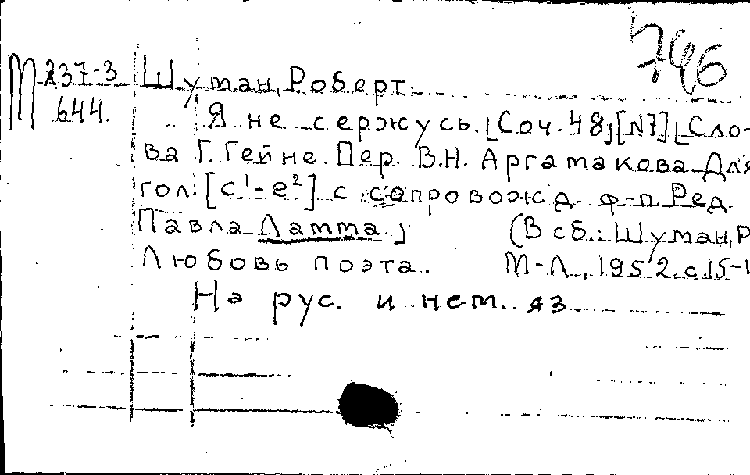 746
М 237-3 Шуман, Роберт.
644. Я не сержусь. [Соч. 48,] [N7] [Сло-
ва Г. Гейне. Пер. В.Н. Аргамакова. Для
гол. [c¹-e²] с сопровожд. ф-п. Ред.
Павла Ламма.] (В сб.: Шуман, Р
Любовь поэта. М-Л., 1952. с.15-1
На рус. и нем. яз.